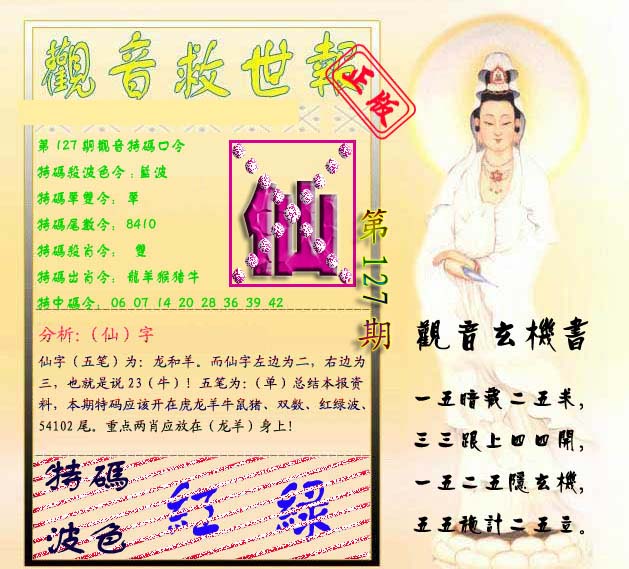 觀音救世報
正版
第127期觀音特碼口令
特碼殺波色令:藍波
特碼單雙令: 單
特碼尾數令: 8410
特碼殺肖令: 雙
特碼出肖令: 龍羊猴猪牛
特中碼令: 06 07 14 20 28 36 39 42
仙
第127期
分析:（仙）字
仙字（五笔）为：龙和羊。而仙字左边为二，右边为
三，也就是说23（牛）！五笔为：（单）总结本报资
料，本期特码应该开在虎龙羊牛鼠猪、双数、红绿波、
54102尾。重点两肖应放在（龙羊）身上！
特碼
波色
紅 綠
觀音玄機書
一五暗藏二五来，
三三跟上四四開，
一五二五隱玄機，
五五施計二五立。